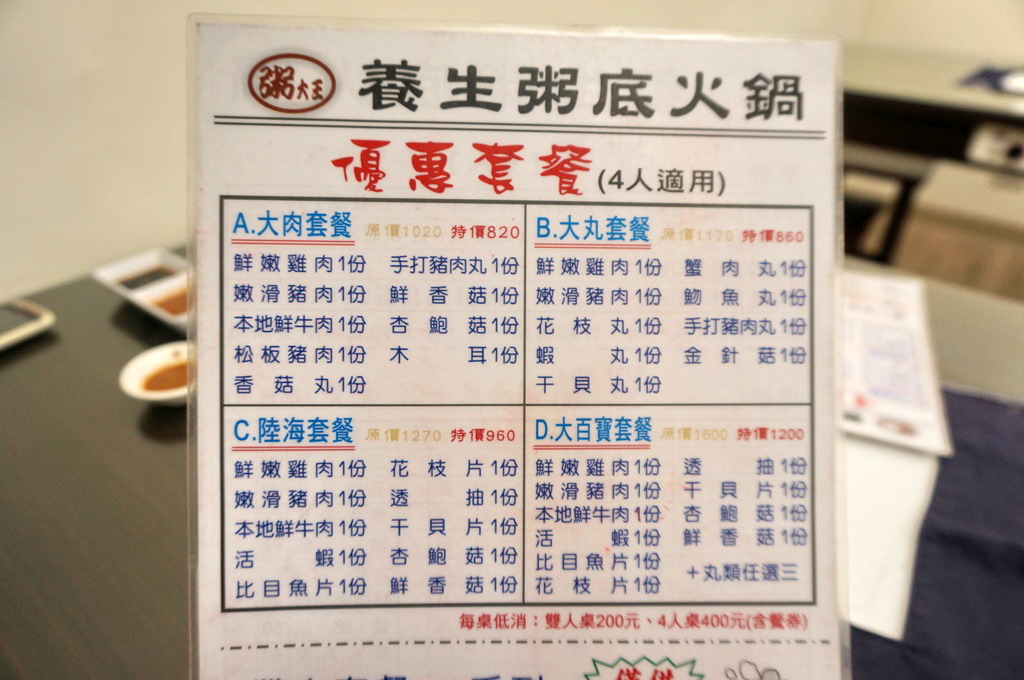 粥大王 養生粥底火鍋
優惠套餐(4人適用)
A.大肉套餐 原價1020 特價820
鮮嫩雞肉1份 手打豬肉丸1份
嫩滑豬肉1份 鮮香菇1份
本地鮮牛肉1份 杏鮑菇1份
松板豬肉1份 木耳1份
香菇丸1份
B.大丸套餐 原價1170 特價860
鮮嫩雞肉1份 蟹肉丸1份
嫩滑豬肉1份 魩魚丸1份
花枝丸1份 手打豬肉丸1份
蝦丸1份 金針菇1份
干貝丸1份
C.陸海套餐 原價1270 特價960
鮮嫩雞肉1份 花枝片1份
嫩滑豬肉1份 透抽1份
本地鮮牛肉1份 干貝片1份
活蝦1份 杏鮑菇1份
比目魚片1份 鮮香菇1份
D.大百寶套餐 原價1600 特價1200
鮮嫩雞肉1份 透抽1份
嫩滑豬肉1份 干貝片1份
本地鮮牛肉1份 杏鮑菇1份
活蝦1份 鮮香菇1份
比目魚片1份 +丸類任選三
花枝片1份
每桌低消：雙人桌200元、4人桌400元(含餐券)